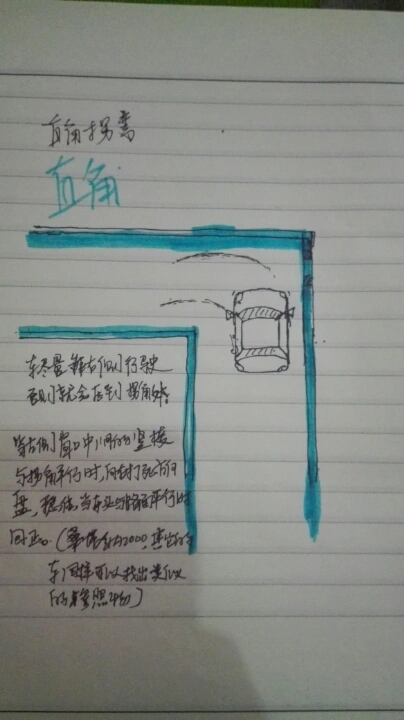 直角拐弯
直角
车尽量靠右侧行驶
否则就会压到拐角线
等右侧窗口中间的竖梭
与拐角平行时,向左打死方向
盘,稳住,当车头与路面平行时
回正。(桑塔纳2000,其它的
车同样可以找出类似
的参照物)